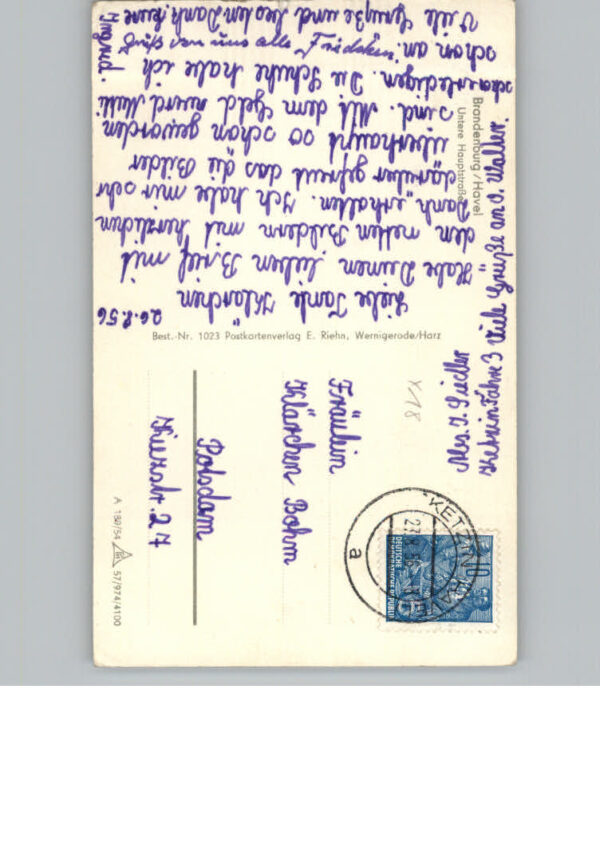 Brandenburg/Havel
Untere Hauptstraße
26.8.56
Liebe Tante Klärchen
Habe Deinen lieben Brief mit
den netten Bildern mit herzlichen
Dank erhalten. Ich habe mir sehr
darüber gefreut das die Bilder
überhaupt so schön geworden
sind. Mit dem Geld wird Mutti
schon erledigen. Die Schuhe habe ich
schon an.
Gruß von uns alle
Viele Grüße und besten Dank. Deine
Ingrid.
viele Grüße an O. Walter.
Best.-Nr. 1023 Postkartenverlag E. Riehn, Wernigerode/Harz
Abs. I. Siedler
Ketzin Fähre 3
Fräulein
Klärchen Bohm
Potsdam
Kiezstr. 27
X18
KETZIN (HAVEL)
a
DEUTSCHE
DEMOKRATISCHE REPUBLIK
A 180/54 57/974/4100